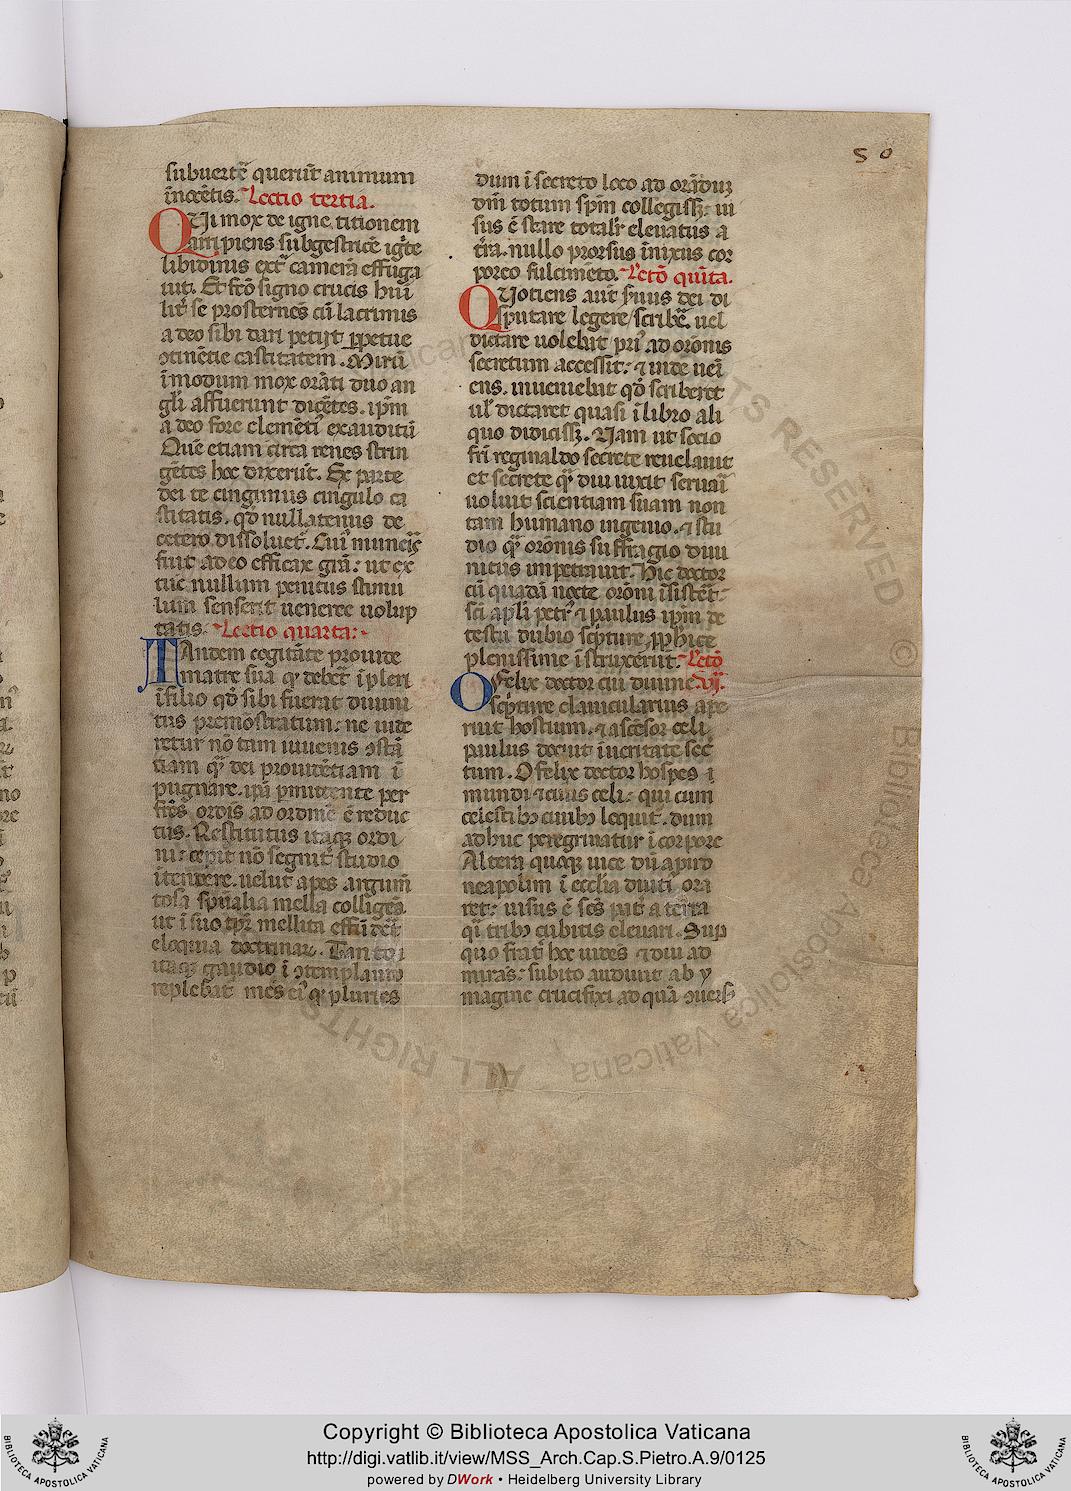 50
subuert̄e querūt animum
īnocētis. Lectio tertia.
QUi mox de igne titionem
arripiens subgestricē igīte
libidinis extᵃ camerā effuga
uit. Et fcō signo crucis hūi
litʳ se prosternēs cū lacrimis
a deo sibi dari petijt ꝑpetue
ↄtinētie castitatem. Mirū
īmodum mox orāti duo an
gli affuerunt dicētes. ip̄m
a deo fore clementʳ exauditū
Quē etiam circa renes strin
gētes hec dixerūt. Ex parte
dei te cingimus cingulo ca
stitatis. qd̄ nullatenus de
cetero dissoluet. Cuiᵒ muneris
fuit adeo efficax grā: ut ex
tūc nullum penitus stimu
lum senserit veneree uolup
tatis. Lectio quarta:
TAndem cogitāte prouide
matre sua qᵒ debet ī pleri
ī filio qd̄ sibi fuerat diuini
tus premōstratum: ne uide
retur nō tam iuuenis ↄstā
tiam qᵃ dei prouidētiam ī
pugnare. ip̄a pmittente per
fr̄es ordīs ad ordinē ē reduc
tus. Restitutus itaqꝫ ordi
ni: cepit nō segnitʳ studio
ītendere. uelut apes argum̄
tosa spūalia mella colligēs
ut ī suo tpr̄e mellita effūdēt
eloquia doctrinaꝝ. Tanto
itaqꝫ gaudio ī ↄtemplando
replebat mēs eiᵒ qꝫ pluries
dum ī secreto loco ad orādūꝫ
dn̄m totum sp̄m collegissꝫ ui
sus ē stare totalʳ eleuatus a
tr̄ra. nullo prorsus īnixus cor
poreo fulcimēto. Lectō quīta.
QUotiens aut̄ s̄uus dei di
sputare legere scribē uel
dictare uolebat priᵒ ad orōnis
secretum accessit: ⁊ inde ueī
ens. inueniebat qd̄ scriberet
ul̄ dictaret quasi ī libro ali
quo didicissꝫ. Nam ut socio
fr̄i reginaldo secrete reuelauit
et secrete qᵃ diu uixit seruaī
uoluit scientiam suam non
tam humano ingenio. ⁊ stu
dio qᵃ orōnis suffragio diui
nitus impetrauit. Hic doctor
cū quadā nocte orōni īsistēt
sc̄i apl̄i petrᵒ ⁊ paulus ip̄m de
testū dubio sc̄pture ꝓph̄ice
plenissime īstruxerūt. Lectō
OFelix doctor cui diuine .vj.
sc̄pture clauicularius ape
ruit hostium. ⁊ ascēsor celi
paulus docuit ī ueritate sec̄
tum. O felix doctor hospes ī
mundi ⁊ ciuis celi: qui cum
celestibᵒ ciuibᵒ loquit̄. dum
adhuc peregrinatur ī corpore
Altera quoqꝫ uice dū apud
neapolim ī ecclīa diuti orā
ret: uisus ē sc̄s pat̄ a terra
qᵃi tribᵒ cubitis eleuari. Sup
quo frat̄ hec uidēs ⁊ diu ad
mirās: subito audiuit ab y
magine crucifixi ad quā ↄuers
Copyright © Biblioteca Apostolica Vaticana
http://digi.vatlib.it/view/MSS_Arch.Cap.S.Pietro.A.9/0125
powered by DWork • Heidelberg University Library